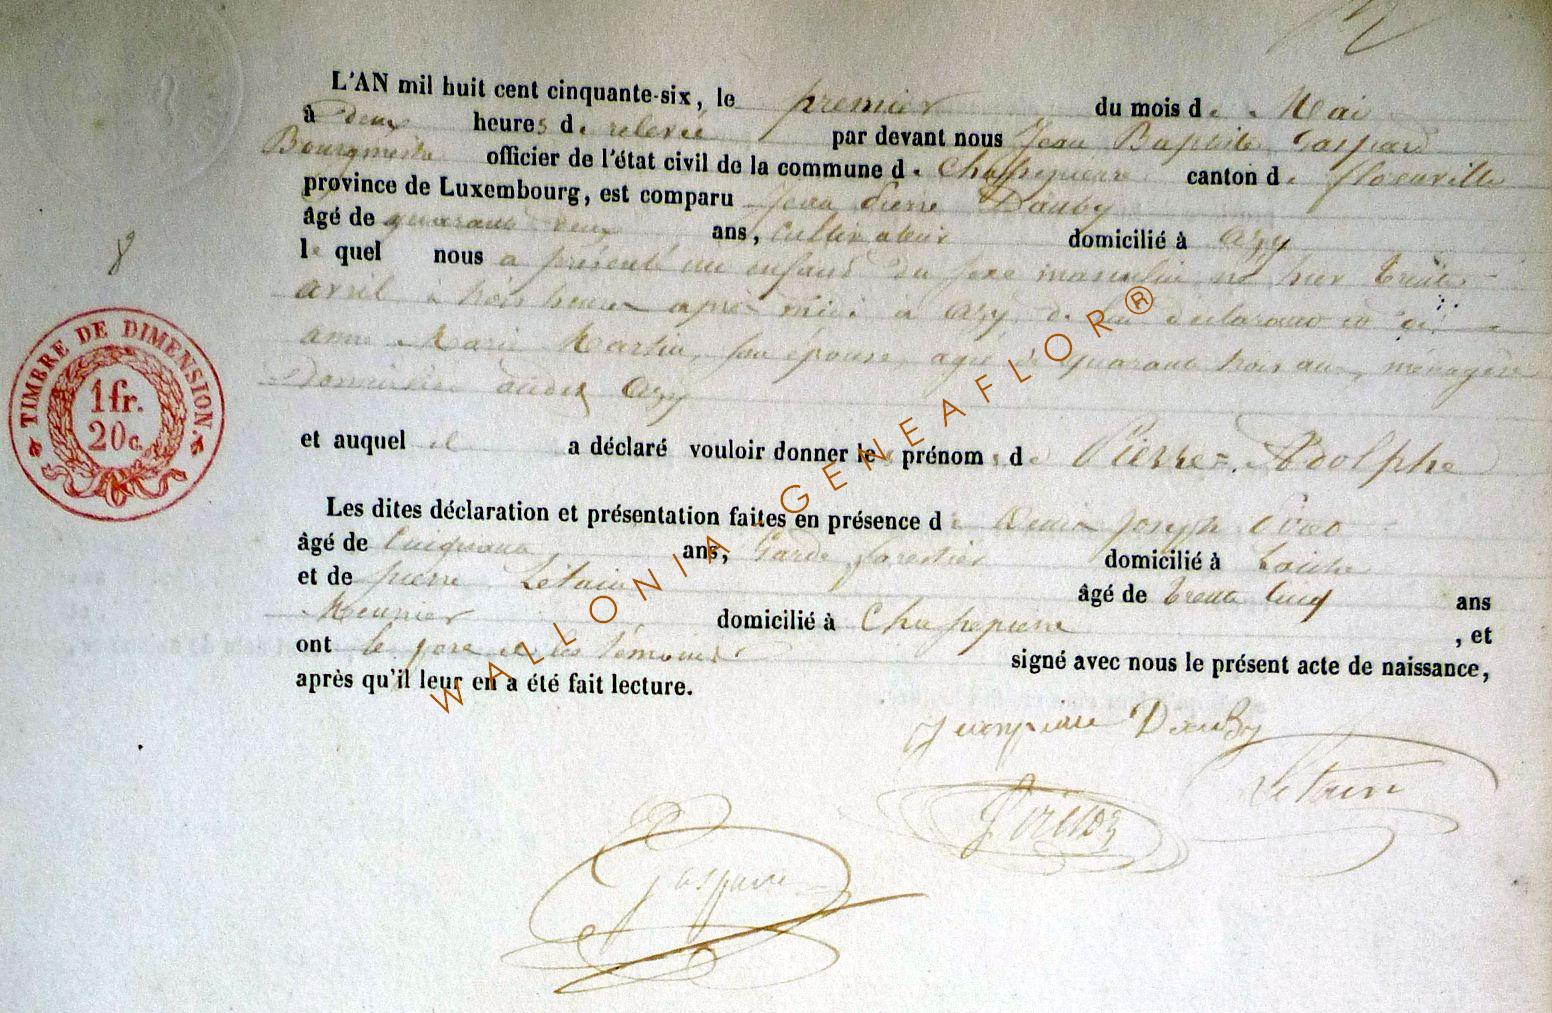 L'AN mil huit cent cinquante-six, le premier du mois de Mai
à deux heures de relevée par devant nous Jean Baptiste Gaspard
Bourgmestre officier de l'état civil de la commune de Chassepierre canton de florenville
province de Luxembourg, est comparu Jean Pierre Dauby
âgé de quarante deux ans, Cultivateur domicilié à Azy
le quel nous a présenté un enfant du sexe masculin né hier trente
avril à trois heures après midi à Azy de lui déclarant et
anne Marie Martin, son épouse, agée de quarante trois ans, ménagère
domiciliée audit Azy
et auquel il a déclaré vouloir donner les prénoms de Pierre=Adolphe
Les dites déclaration et présentation faites en présence de Joseph
âgé de Cinquante ans, Garde forestier domicilié à Laiche
et de pierre Létain âgé de trente cinq ans
Meunier domicilié à Chassepierre , et
ont le père et les témoins signé avec nous le présent acte de naissance,
après qu'il leur en a été fait lecture.
Jeanpierre Dauby
Letain
Gaspard
TIMBRE DE DIMENSION.
1fr.
20c.
8
WALLONIA-GENEAFLOR®